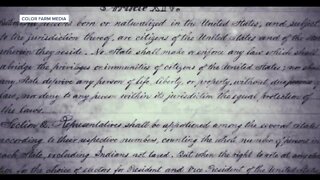 COLOR FARM MEDIA
Article XIV.
persons born or naturalized in the United States, and subject
to the jurisdiction thereof, are citizens of the United States and of the
wherein they reside. No State shall make or enforce any law which shall
abridge the privileges or immunities of citizens of the United States; nor shall
any State deprive any person of life, liberty, or property, without due process
law, nor deny to any person within its jurisdiction the equal protection of
the laws.
Section 2. Representatives shall be apportioned among the several states
according to their respective numbers, counting the whole number of persons in
each State, excluding Indians not taxed. But when the right to vote at any
in the choice of electors for President and Vice President of the United